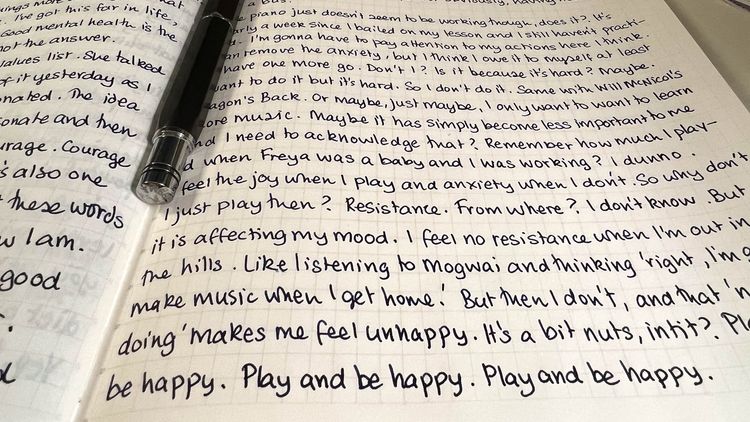 I've got this far in life,
Good mental health is the
not the answer.
values list. She talked
of it yesterday as I
The idea
and then
Courage
also one
these words
I am.
good
a bus.
piano just doesn't seem to be working though, does it? It's
a week since I bailed on my lesson and I still haven't practi-
I'm gonna have to pay attention to my actions here I think.
can remove the anxiety, but I think I owe it to myself at least
have one more go. Don't I? Is it because it's hard? Maybe.
want to do it but it's hard. So I don't do it. Same with Will McNicol's
Back. Or maybe, just maybe, I only want to want to learn
more music. Maybe it has simply become less important to me
and I need to acknowledge that? Remember how much I play-
d when Freya was a baby and I was working? I dunno.
feel the joy when I play and anxiety when I don't. So why don't
I just play then? Resistance. From where? I don't know. But
it is affecting my mood. I feel no resistance when I'm out in
the hills. Like listening to Mogwai and thinking 'right, I'm
make music when I get home.' But then I don't, and that
doing' makes me feel unhappy. It's a bit nuts, intit?
be happy. Play and be happy. Play and be happy.